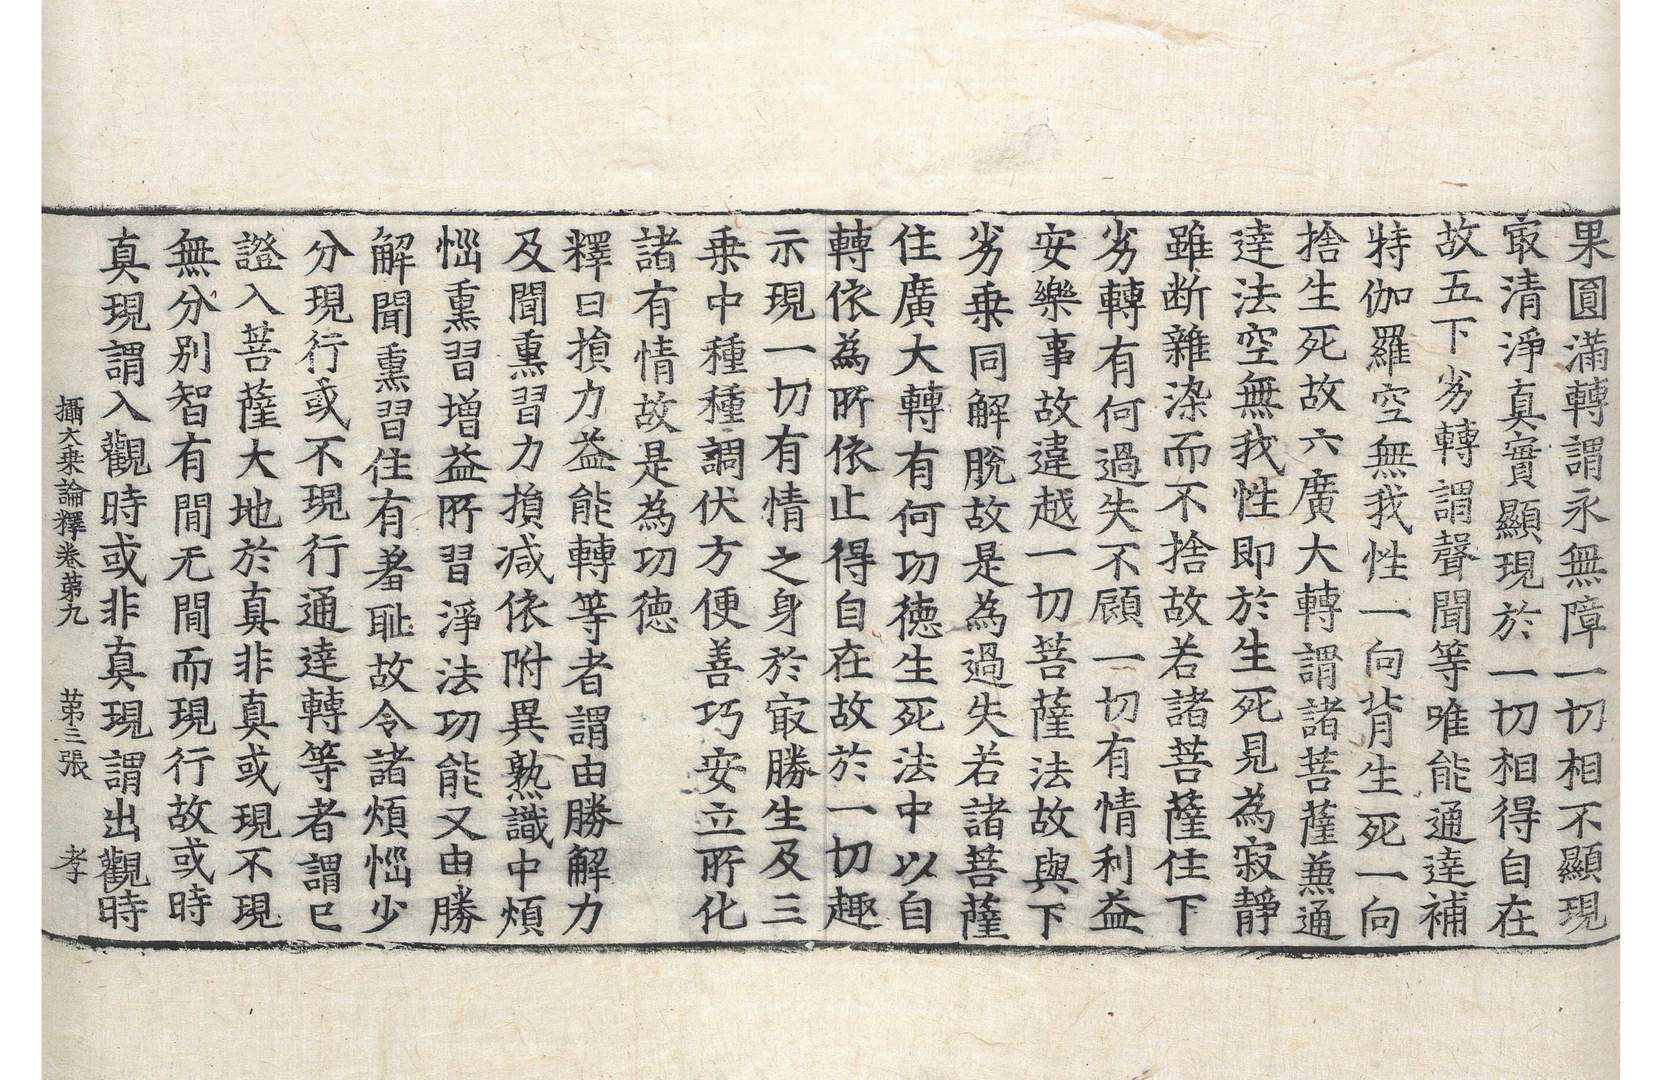 果圎滿轉謂永無障一切相不顯現
㝡清淨真實顯現於一切相得自在
故五下劣轉謂聲聞等唯能通達補
特伽羅空無我性一向背生死一向
捨生死故六廣大轉謂諸菩薩兼通
達法空無我性即於生死見為寂靜
雖断雜染而不捨故若諸菩薩住下
劣轉有何過失不顧一切有情利益
安樂事故違越一切菩薩法故與下
劣乗同解脫故是為過失若諸菩薩
住廣大轉有何功德生死法中以自
轉依為所依止得自在故於一切趣
示現一切有情之身於㝡勝生及三
乗中種種調伏方便善巧安立所化
諸有情故是為功德
釋曰損力益能轉等者謂由勝解力
及聞熏習力損减依附異熟識中煩
惱熏習增益所習淨法功能又由勝
解聞熏習住有羞耻故令諸煩惱少
分現行或不現行通達轉等者謂已
證入菩薩大地於真非真或現不現
無分別智有間无間而現行故或時
真現謂入觀時或非真現謂出觀時
攝大乗論釋卷苐九 苐三張 孝